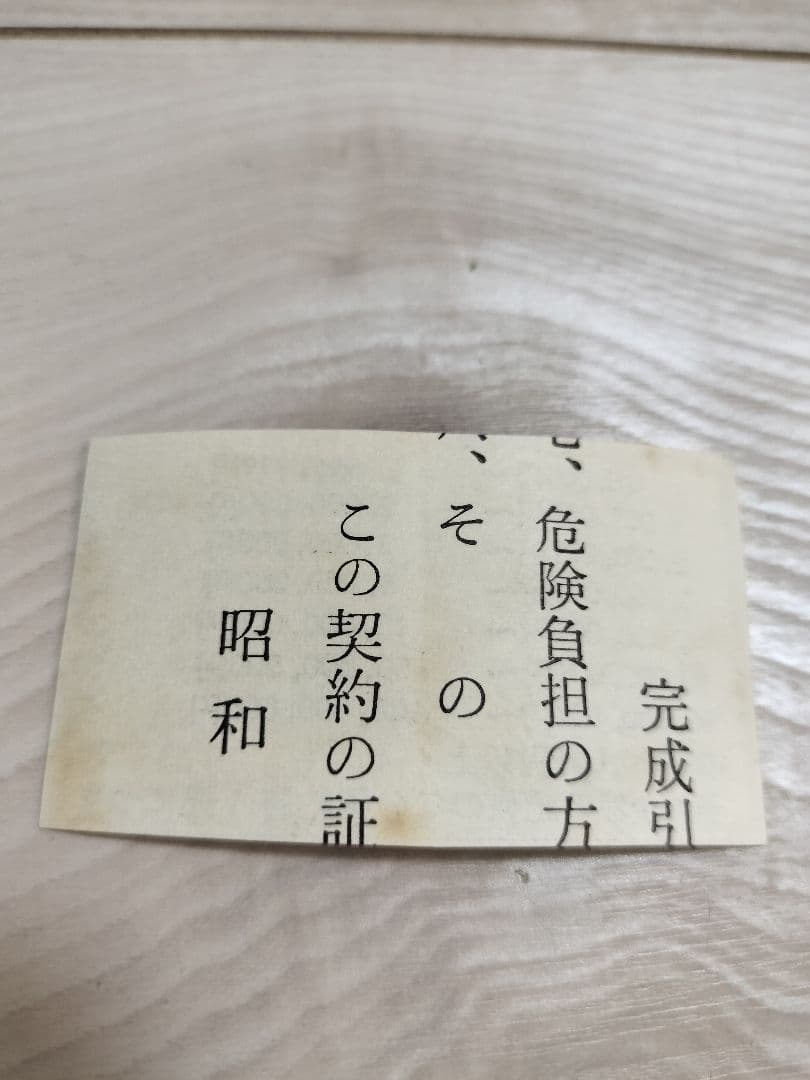 完成引
、危険負担の方
、その
この契約の証
昭和